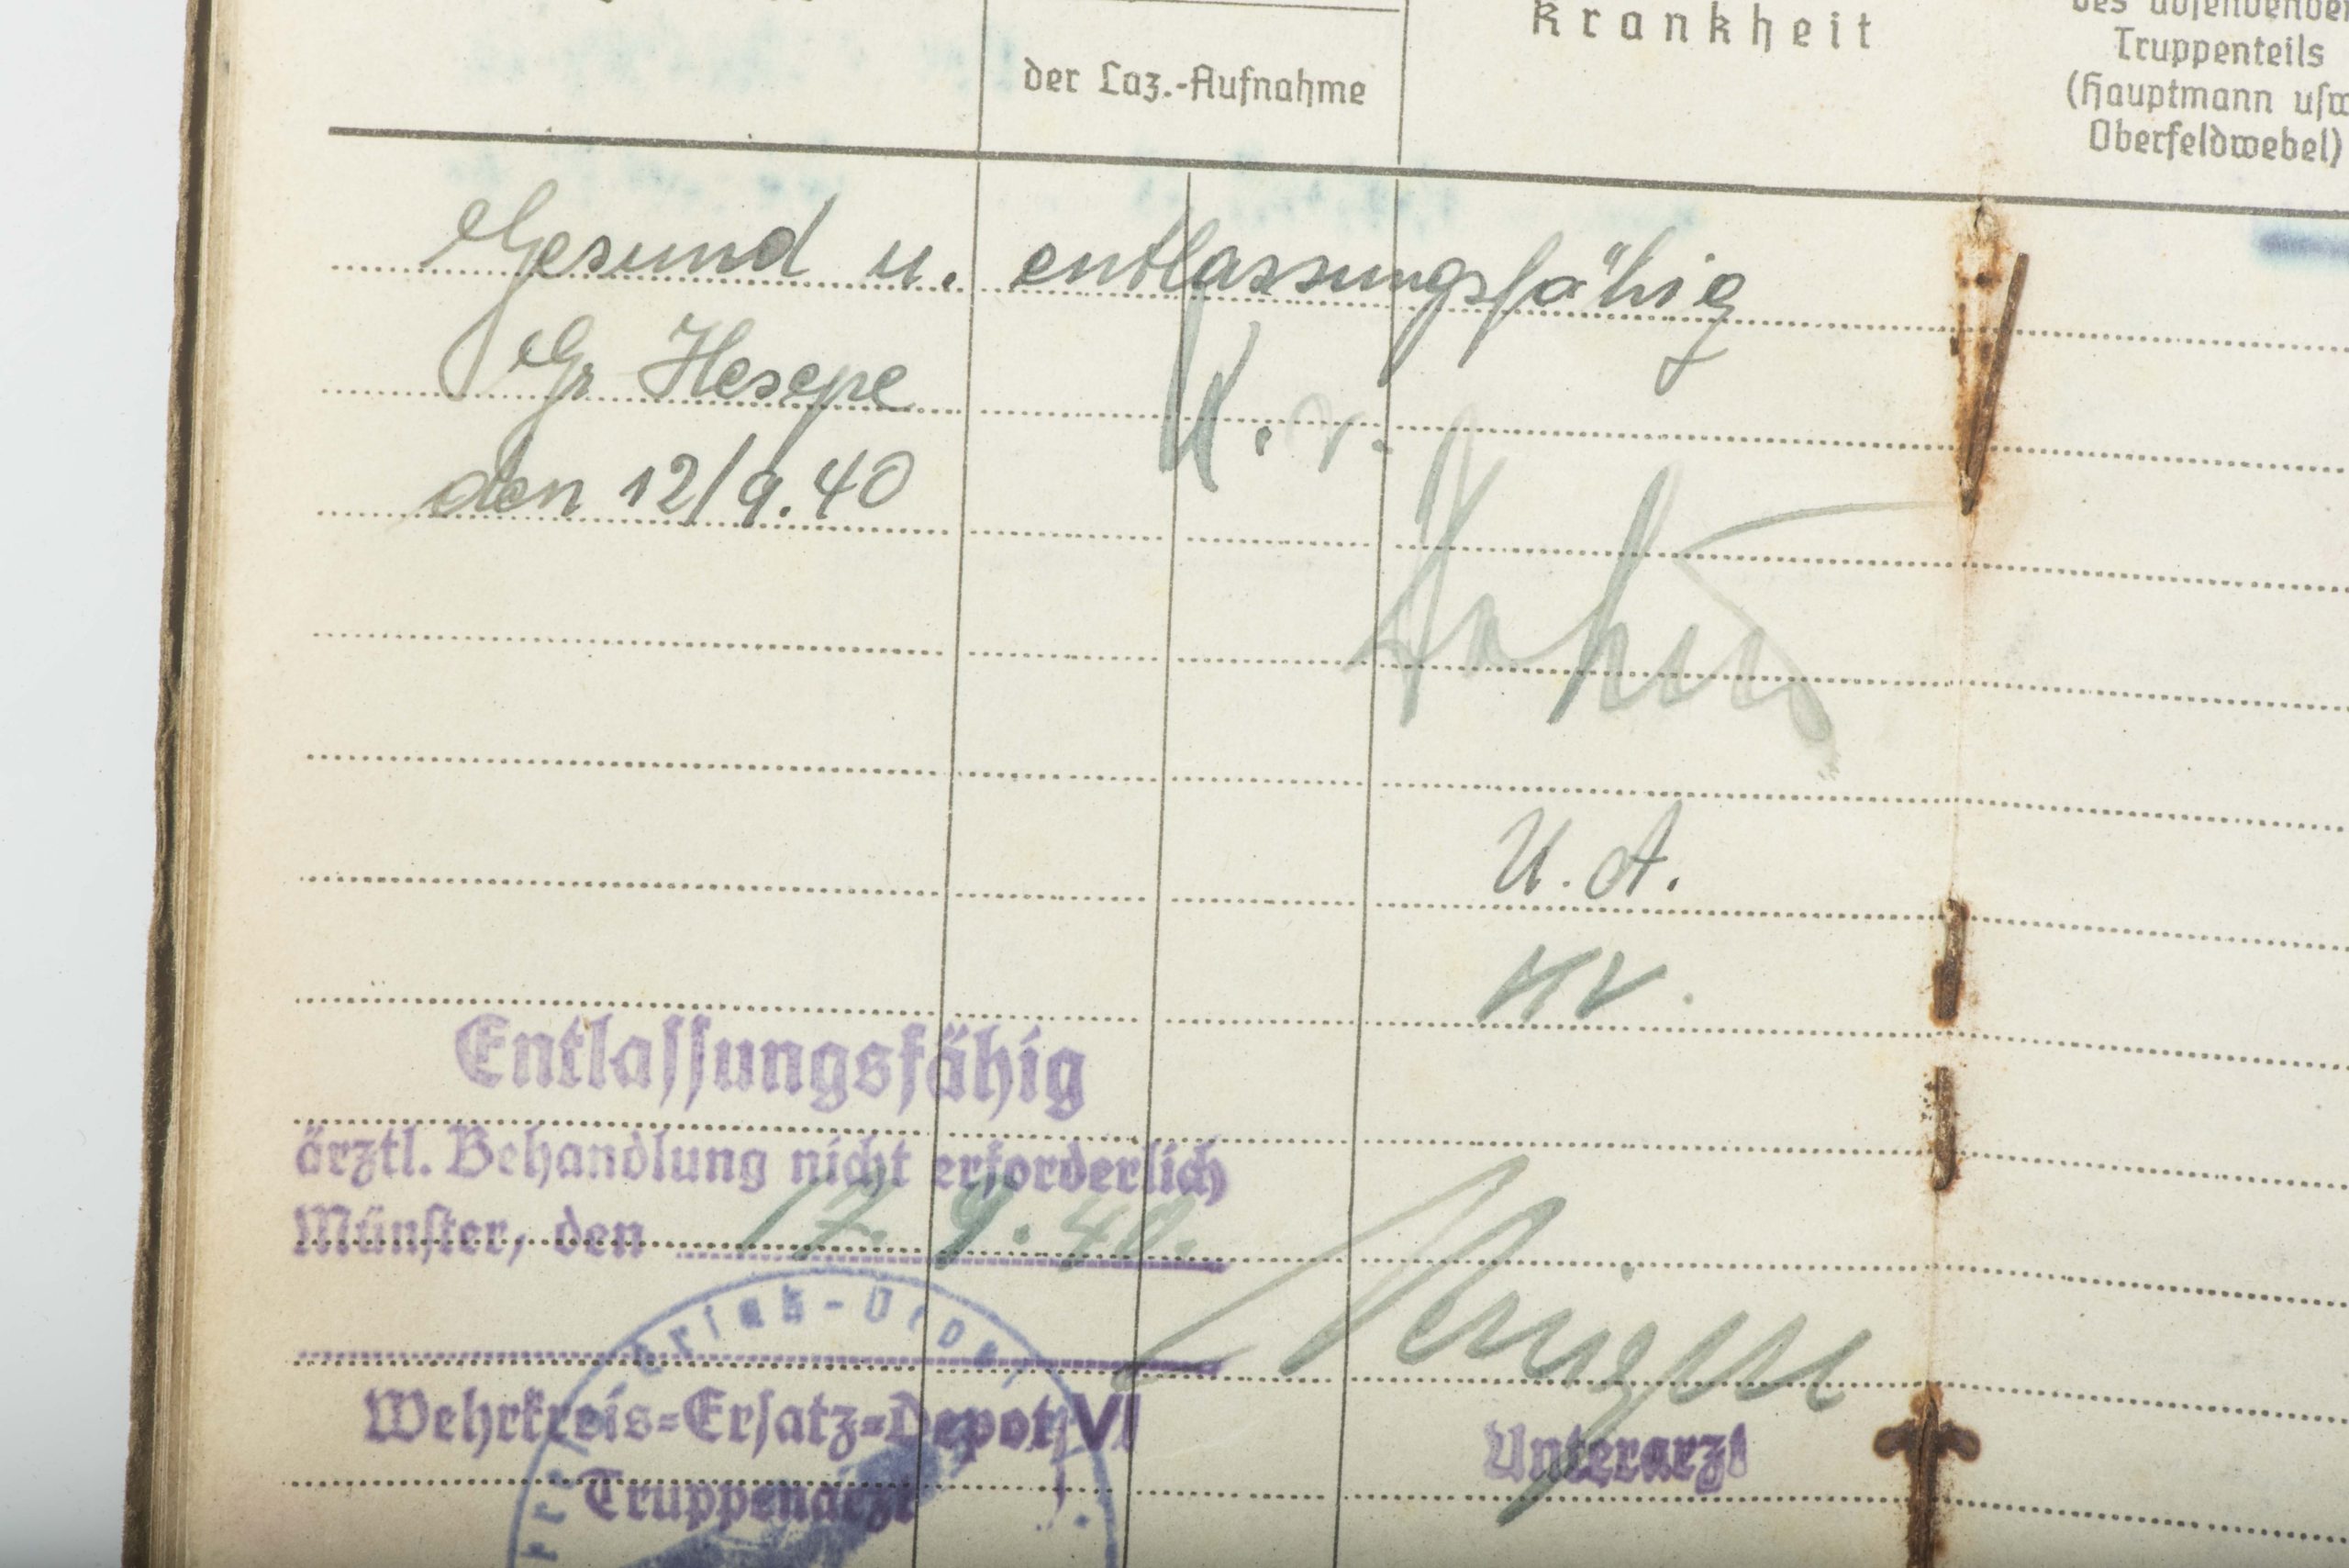 Krankheit
der Laz.-Aufnahme
Truppenteils
(Hauptmann usw
Oberfeldwebel)
Gesund u. entlassungsfähig
Gr Hesepe
den 12/9.40
U. A.
Entlassungsfähig
ärztl. Behandlung nicht erforderlich
Münster, den 17. 9. 40.
Wehrkreis=Ersatz=Depot VI
Truppenarzt
Unterarzt